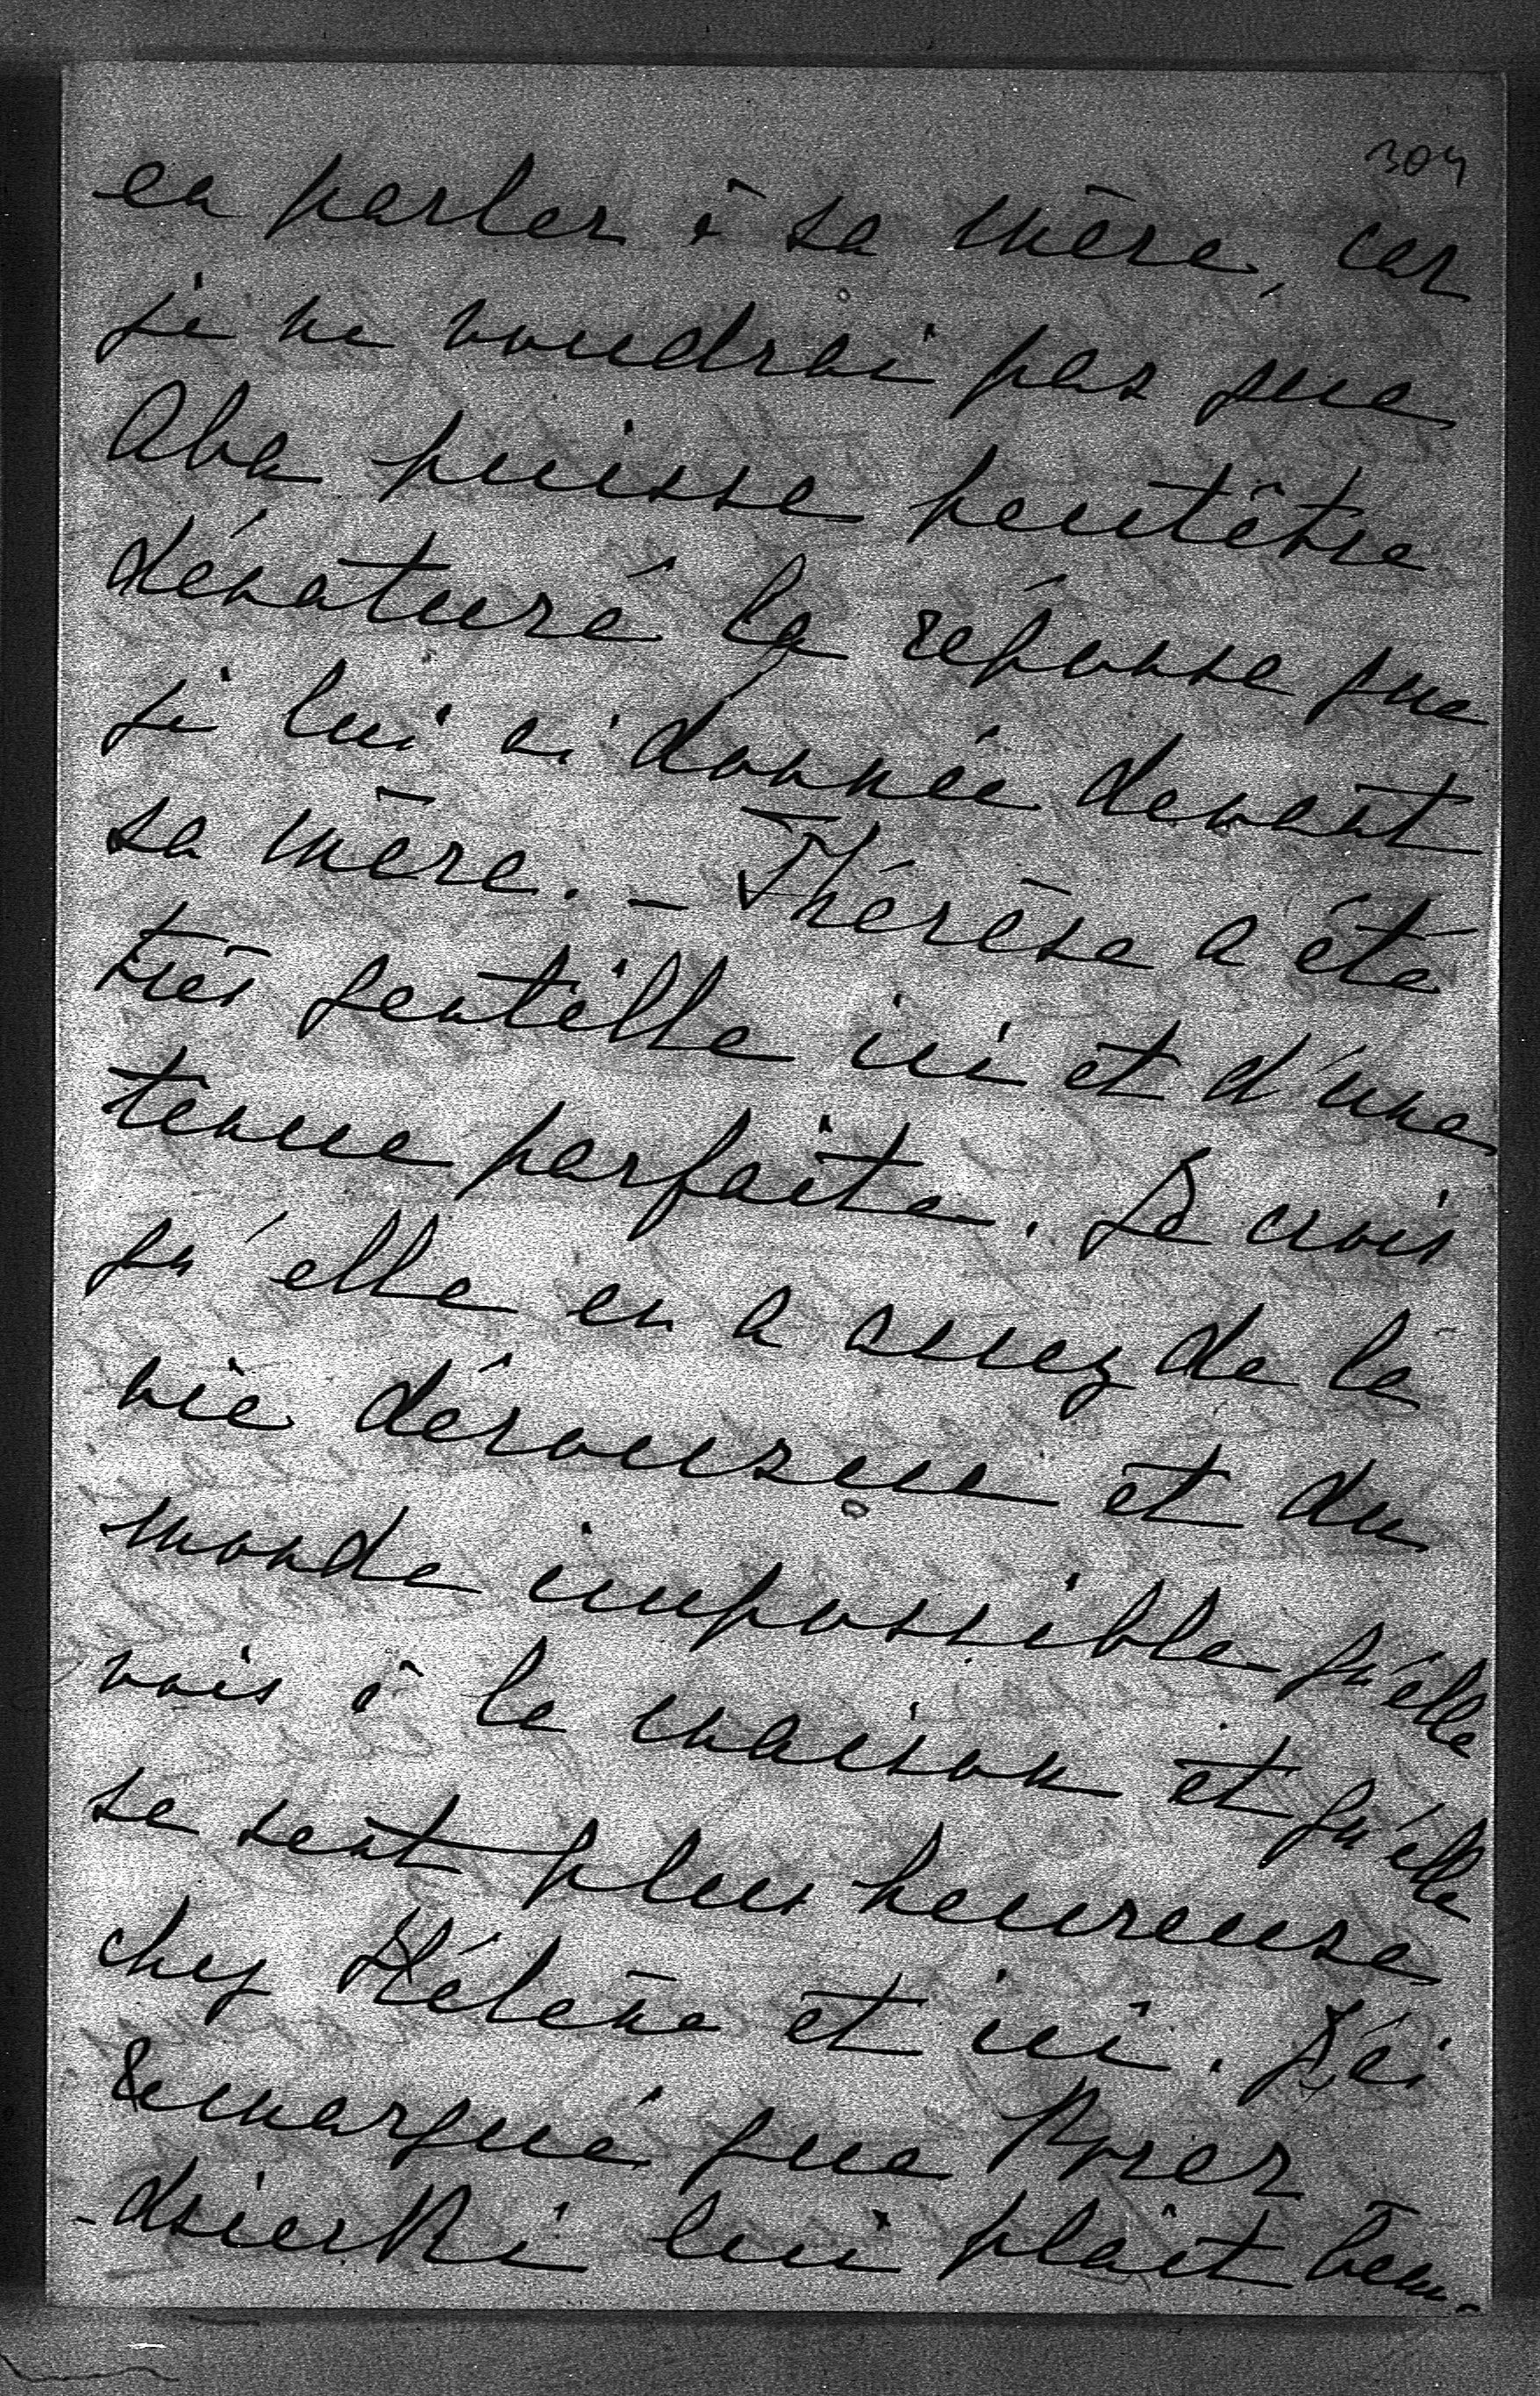 304
en parler à sa mère, car
je ne voudrai pas que
Aba puisse peutêtre
dénaturé la réponse que
je lui ai donnée devant
sa mère. – Thérèse a été
très gentille ici et d'une
tenue parfaite. Je crois
qu'elle en a assez de la
vie décousue et du
monde impossible qu'elle
vois à la maison et qu'elle
se sent plus heureuse
chez Hélène et ici. J'ai
remarqué que
lui plait beau-